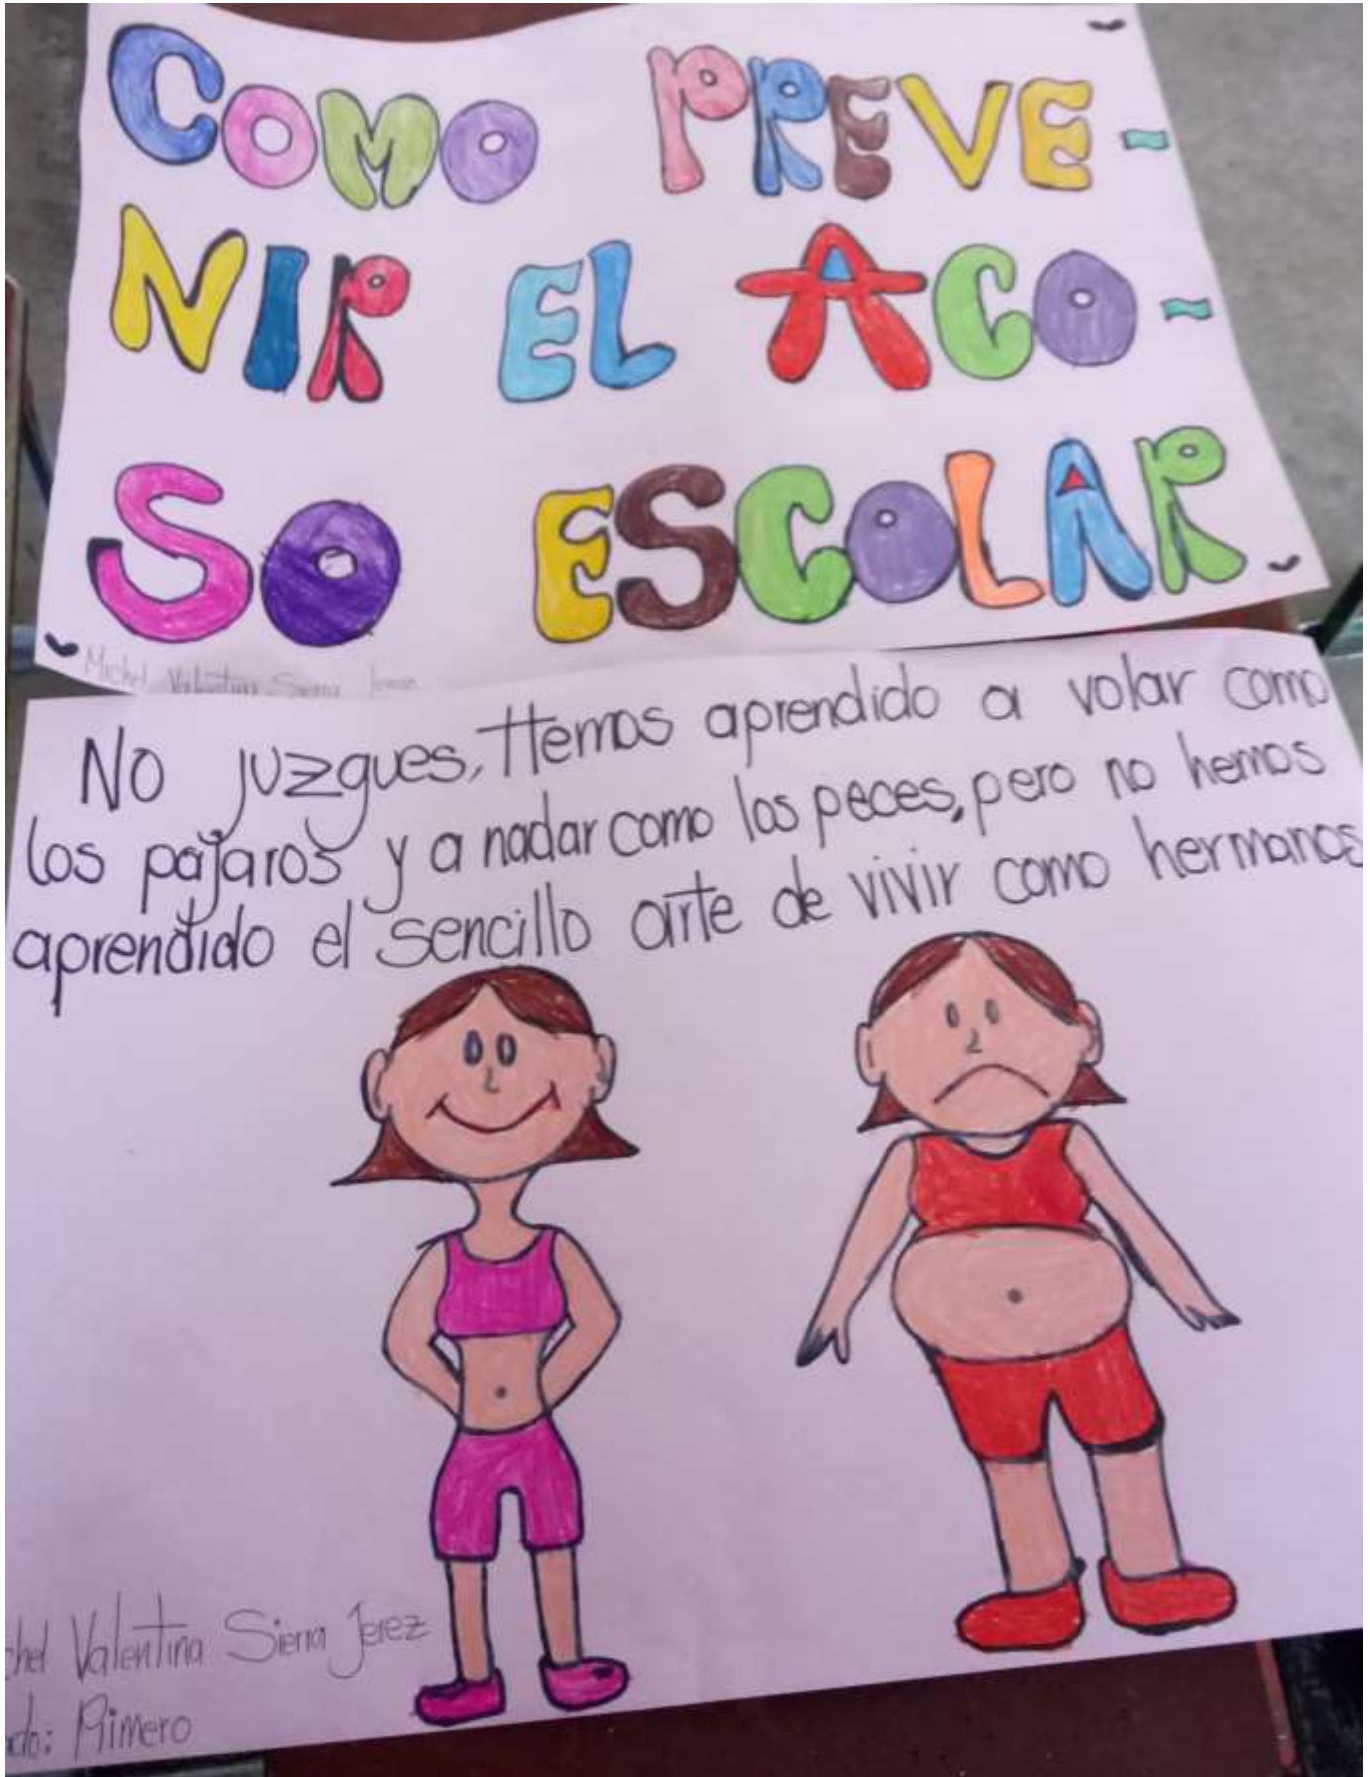 COMO PREVE-
NIR EL ACO-
SO ESCOLAR
Michel Valentina Sierra Jerez
No juzgues, Hemos aprendido a volar como
los pajaros y a nadar como los peces, pero no hemos
aprendido el sencillo arte de vivir como hermanos
chel Valentina Sierra Jerez
ado: Primero